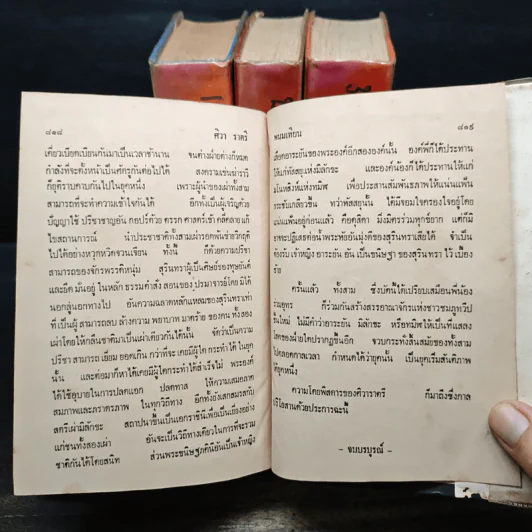 ๘๑๘ ศิวา ราตรี
เคี่ยวเบียดเบียนกันมาเป็นเวลาช้านาน จนต่างฝ่ายต่างก็หมด
กำลังที่จะตั้งหน้าเป็นศัตรูกันต่อไปได้ สงครามเช่นมารารี
ก็ยุติราบคาบกันไปในยุคหนึ่ง เพราะผู้นำของเผ่าทั้งสาม
สามารถที่จะทำความเข้าใจกันได้ อีกทั้งเป็นผู้เจริญด้วย
ปัญญาใช้ ปรีชาชาญอัน กอปร์ด้วย ตรรก ศาสตร์เข้า คลี่คลาย แก้
ไขสถานการณ์ นำประชาชาติทั้งสามเผ่ารอดพ้นช่วงวิกฤติ
ไปได้อย่างหวุดหวิดจวนเจียน ทั้งนี้ ก็ด้วยความปรีชา
สามารถของจักรพรรดิหนุ่ม สุรินทราผู้เป็นศิษย์ของทุษยันต์
และยึด มั่นอยู่ ในหลัก ธรรมคำสั่ง สอนของ ปรมาจารย์โดย มิได้
นอกลู่นอกทางไป อันความฉลาดหลักแหลมของสุรินทราเท่า
ที่ เป็นผู้ สามารถลบ ล้างความ พยาบาท มาดร้าย ของคน ทั้งสอง
เผ่าโดยให้กลับชาติมาเป็นเผ่าเดียวกันได้นั้น จัดว่าเป็นความ
ปรีชา สามารถ เยี่ยม ยอดเกิน กว่าที่จะ เคยมีผู้ใด กระทำได้ ในยุค
นั้น และต่อมาก็หาได้เคยมีผู้ใดกระทำได้สำเร็จไม่ พระองค์
ได้ใช้อุบายในการปลดแอก ปลดทาส ให้ความเสมอภาค
สมภาพและภราดรภาพ ในทุกวิถีทาง อีกทั้งยังเกสมรสกับ
สตรีเผ่ามิลักขะ สถาปนาขึ้นเป็นเอกราชินีเพื่อเป็นเยี่ยงอย่าง
แก่ชนทั้งสองเผ่า อันจะเป็นวิธีทางเดียวในการที่จะรวม
ชาติกันได้โดยสนิท ส่วนพระขนิษฐภคินีอันเป็นเจ้าหญิง
พนมเทียน ๘๑๙
เลือดอาระยันของพระองค์อีกสององค์นั้น องค์พี่ก็ได้ประทาน
ให้แก่ทัสสยุแห่งมิลักขะ และองค์น้องก็ได้ประทานให้แก่
มโนหสิงห์แห่งทมิฬ เพื่อประสานสัมพันธภาพให้แน่นแฟ้น
กระชับเกลียวขึ้น ทว่าทัสสยุนั้น ได้มีจอมใจครองใจอยู่โดย
แน่นแฟ้นอยู่ก่อนแล้ว คือดุสิตา มิ่งมิตรร่วมทุกข์ยาก แต่ก็มิ
อาจจะปฏิเสธต่อน้ำพระทัยอันมุ่งดีของสุรินทราเสียได้ จำเป็น
ต้องรับ เจ้าหญิง อาระยัน อัน เป็นขนิษฐา ของสุรินทรา ไว้ เบื้อง
ซ้าย
ครั้นแล้ว ทั้งสาม ซึ่งบัดนี้ได้เปรียบเสมือนพี่น้อง
ร่วมอุทร ก็ร่วมกันสร้างสรรอาณาจักรแห่งชาวชมภูทวีป
ขึ้นใหม่ ไม่มีคำว่าอาระยัน มิลักขะ หรือทมิฬให้เป็นที่แสลง
โสตของฝ่ายใดปรากฏขึ้นอีก จวบกระทั่งสิ้นสมัยของทั้งสาม
ไปตลอดกาลเวลา กำหนดได้ว่ายุคนั้น เป็นยุคเริ่มสันติภาพ
ได้ยุคหนึ่ง
ความโดยพิสดารของศิวาราตรี ก็มาถึงซึ่งกาล
อวสานด้วยประการฉะนี้
– จบบริบูรณ์ –